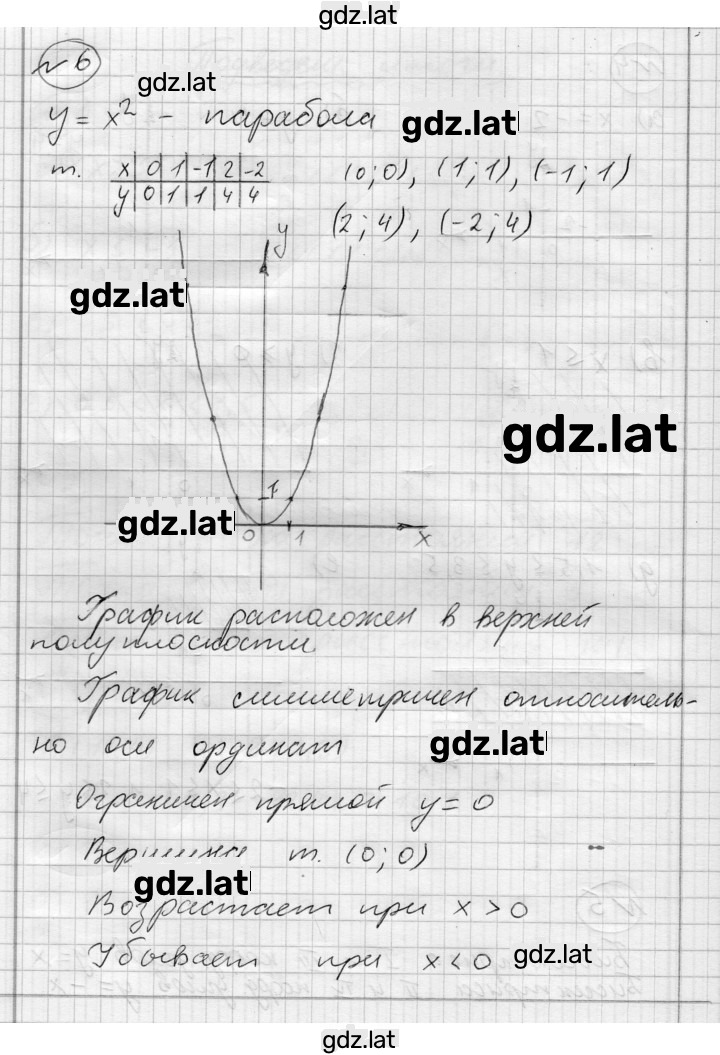 gdz.lat
№6
gdz.lat
y = x² - парабола
gdz.lat
т. x 0 1 -1 2 -2
y 0 1 1 4 4
(0;0), (1;1), (-1;1)
(2;4), (-2;4)
y
gdz.lat
gdz.lat
1
gdz.lat
0 1 x
График расположен в верхней
полуплоскости
График симметричен относитель-
но оси ординат
gdz.lat
Ограничен прямой y = 0
Вершина т. (0;0)
gdz.lat
Возрастает при x > 0
Убывает при x < 0
gdz.lat
gdz.lat